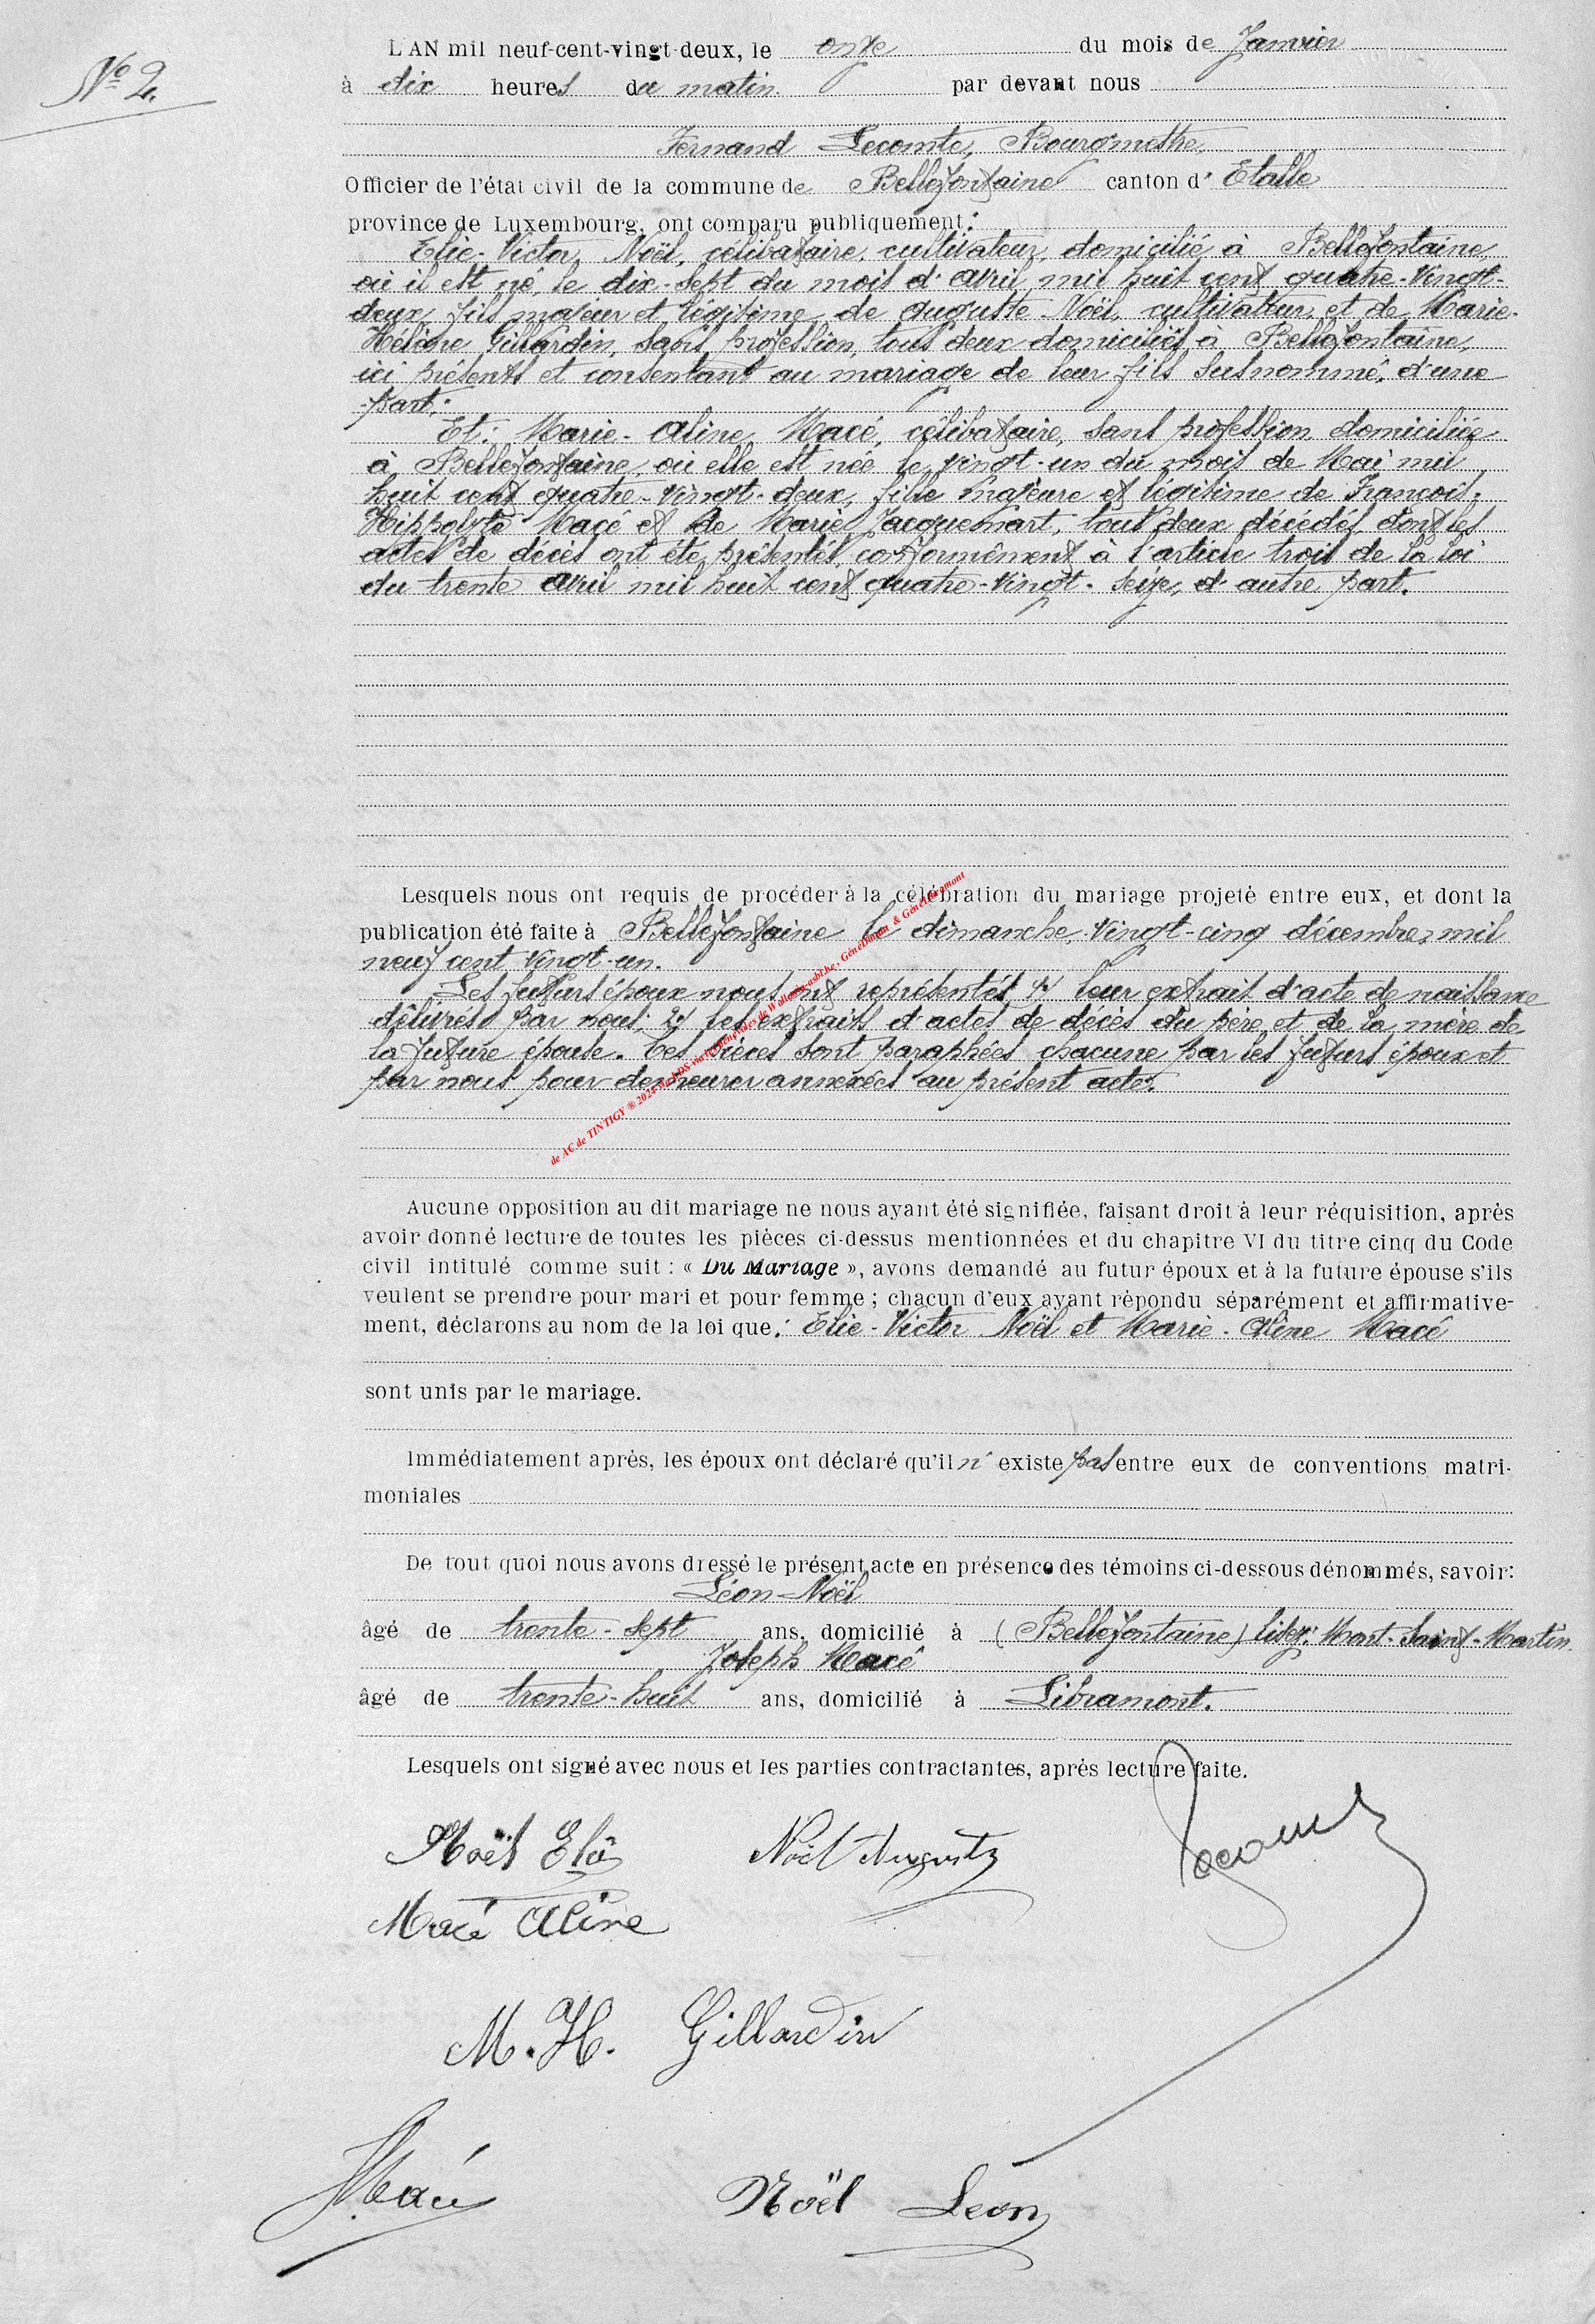 N° 2.
L'AN mil neuf-cent-vingt-deux, le onze du mois de Janvier
à dix heures du matin par devant nous
Fernand Lecomte, Bourgmestre,
Officier de l'état civil de la commune de Bellefontaine canton d' Etalle
province de Luxembourg, ont comparu publiquement :
Elie-Victor Noël, célibataire, cultivateur, domicilié à Bellefontaine,
où il est né, le dix-sept du mois d'avril mil huit cent quatre-vingt-
deux, fils majeur et légitime de Auguste Noël, cultivateur, et de Marie-
Hélène Gillardin, sans profession, tous deux domiciliés à Bellefontaine,
ici présents et consentant au mariage de leur fils susnommé, d'une
part.
Et : Marie-Aline Macé, célibataire, sans profession domiciliée
à Bellefontaine, où elle est née le vingt-un du mois de Mai mil
huit cent quatre-vingt-deux, fille majeure et légitime de François-
Hippolyte Macé et de Marie Jacquemart, tous deux décédés dont les
actes de décès ont été présentés, conformément à l'article trois de la loi
du trente avril mil huit cent quatre-vingt-seize, d'autre part.
Lesquels nous ont requis de procéder à la célébration du mariage projeté entre eux, et dont la
publication été faite à Bellefontaine le dimanche, vingt-cinq décembre mil
neuf cent vingt-un.
Les futurs époux nous ont représentés 1° leur extrait d'acte de naissance
délivrés par nous; 2° les extraits d'actes de décès du père et de la mère de
la future épouse. Ces pièces sont paraphées chacune par les futurs époux et
par nous pour demeurer annexées au présent acte.
de AC de TINTIGY ® 2024 via les bénévoles de Wallonia-asbl.be, GénéDinant & GénéLibramont
Aucune opposition au dit mariage ne nous ayant été signifiée, faisant droit à leur réquisition, après
avoir donné lecture de toutes les pièces ci-dessus mentionnées et du chapitre VI du titre cinq du Code
civil intitulé comme suit : « Du Mariage », avons demandé au futur époux et à la future épouse s'ils
veulent se prendre pour mari et pour femme ; chacun d'eux ayant répondu séparément et affirmative-
ment, déclarons au nom de la loi que : Elie-Victor Noël et Marie-Aline Macé
sont unis par le mariage.
Immédiatement après, les époux ont déclaré qu'il n' existe pas entre eux de conventions matri-
moniales
De tout quoi nous avons dressé le présent acte en présence des témoins ci-dessous dénommés, savoir :
Léon Noël
âgé de trente-sept ans, domicilié à (Bellefontaine) lisez: Mont-Saint-Martin.
Joseph Macé
âgé de trente-huit ans, domicilié à Libramont.
Lesquels ont signé avec nous et les parties contractantes, après lecture faite.
Noël Elie Noël Auguste Lecomte
Macé Aline
M. H. Gillardin
J. Macé Noël Léon